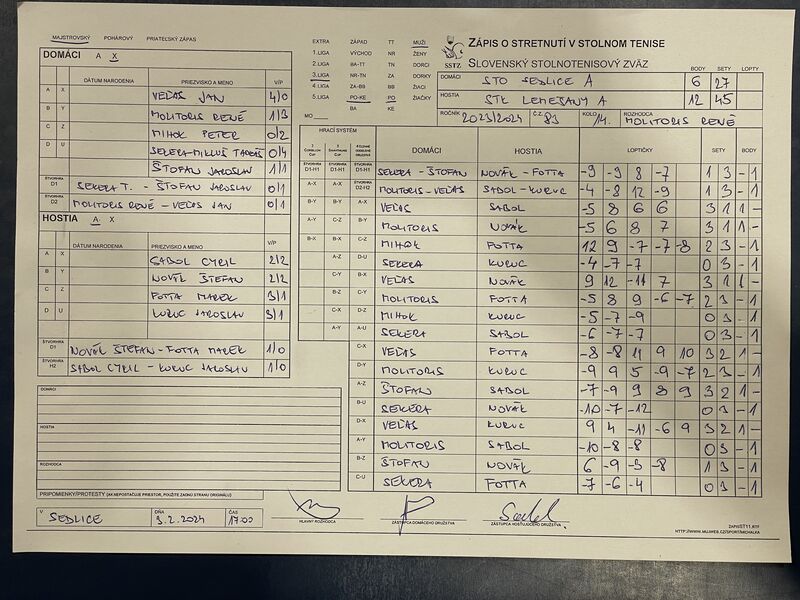 MAJSTROVSKÝ POHÁROVÝ PRIATEĽSKÝ ZÁPAS
DOMÁCI A X
DÁTUM NARODENIA PRIEZVISKO A MENO V/P
A X VEĽAS JAN 4/0
B Y MOLITORIS RENÉ 1/3
C Z MIHOK PETER 0/2
D U SEKERA-MIKLUŠ TADEÁŠ 0/4
ŠTOFAN JAROSLAV 1/1
ŠTVORHRA D1 SEKERA T. - ŠTOFAN JAROSLAV 0/1
ŠTVORHRA D2 MOLITORIS RENÉ - VEĽAS JAN 0/1
HOSTIA A X
DÁTUM NARODENIA PRIEZVISKO A MENO V/P
A X SABOL CYRIL 2/2
B Y NOVÁK ŠTEFAN 2/2
C Z FOTTA MAREK 3/1
D U KURUC JAROSLAV 3/1
ŠTVORHRA D1 NOVÁK ŠTEFAN - FOTTA MAREK 1/0
ŠTVORHRA H2 SABOL CYRIL - KURUC JAROSLAV 1/0
DOMÁCI
HOSTIA
ROZHODCA
PRIPOMIENKY/PROTESTY (AK NEPOSTAČUJE PRIESTOR, POUŽITE ZADNÚ STRANU ORIGINÁLU)
V SEDLICE DŇA 3.2.2024 ČAS 17:00
HLAVNÝ ROZHODCA
ZÁSTUPCA DOMÁCEHO DRUŽSTVA
ZÁSTUPCA HOSŤUJÚCEHO DRUŽSTVA
EXTRA ZÁPAD TT MUŽI
1.LIGA VÝCHOD NR ŽENY
2.LIGA BA-TT TN DORCI
3.LIGA NR-TN ZA DORKY
4.LIGA ZA-BB BB ŽIACI
5.LIGA PO-KE PO ŽIAČKY
MO BA KE
SSTZ
ZÁPIS O STRETNUTÍ V STOLNOM TENISE
SLOVENSKÝ STOLNOTENISOVÝ ZVÄZ
BODY SETY LOPTY
DOMÁCI STO SEDLICE A 6 27
HOSTIA STK LEMEŠANY A 12 45
ROČNÍK 2023/2024 Č.Z. 83 KOLO 14. ROZHODCA MOLITORIS RENÉ
HRACÍ SYSTÉM
DOMÁCI HOSTIA LOPTIČKY SETY BODY
D1-H1 D1-H1 D1-H1 SEKERA - ŠTOFAN NOVÁK - FOTTA -9 -9 8 -7 1 3 - 1
A-X A-X D2-H2 MOLITORIS - VEĽAS SABOL - KURUC -4 -8 12 -9 1 3 - 1
B-Y B-Y A-X VEĽAS SABOL -5 8 6 6 3 1 1 -
A-Y C-Z B-Y MOLITORIS NOVÁK -5 6 8 7 3 1 1 -
B-X B-X MIHOK FOTTA 12 9 -7 -7 -8 2 3 - 1
A-Z D-U SEKERA KURUC -4 -7 -7 0 3 - 1
C-Y B-X VEĽAS NOVÁK 9 12 -11 7 3 1 1 -
B-Z C-Y MOLITORIS FOTTA -5 8 9 -6 -7 2 3 - 1
C-X D-Z MIHOK KURUC -5 -7 -9 0 3 - 1
A-Y A-U SEKERA SABOL -6 -7 -7 0 3 - 1
C-X VEĽAS FOTTA -8 -8 11 9 10 3 2 1 -
D-Y MOLITORIS KURUC -9 9 5 -9 -7 2 3 - 1
A-Z ŠTOFAN SABOL -7 -9 9 8 9 3 2 1 -
B-U SEKERA NOVÁK -10 -7 -12 0 3 - 1
D-X VEĽAS KURUC 9 4 -11 -6 9 3 2 1 -
A-Y MOLITORIS SABOL -10 -8 -8 0 3 - 1
B-Z ŠTOFAN NOVÁK 6 -9 -3 -8 1 3 - 1
C-U SEKERA FOTTA -7 -6 -4 0 3 - 1
ZAPISST11.RTF
HTTP://WWW.MUJWEB.CZ/SPORT/MICHALKA